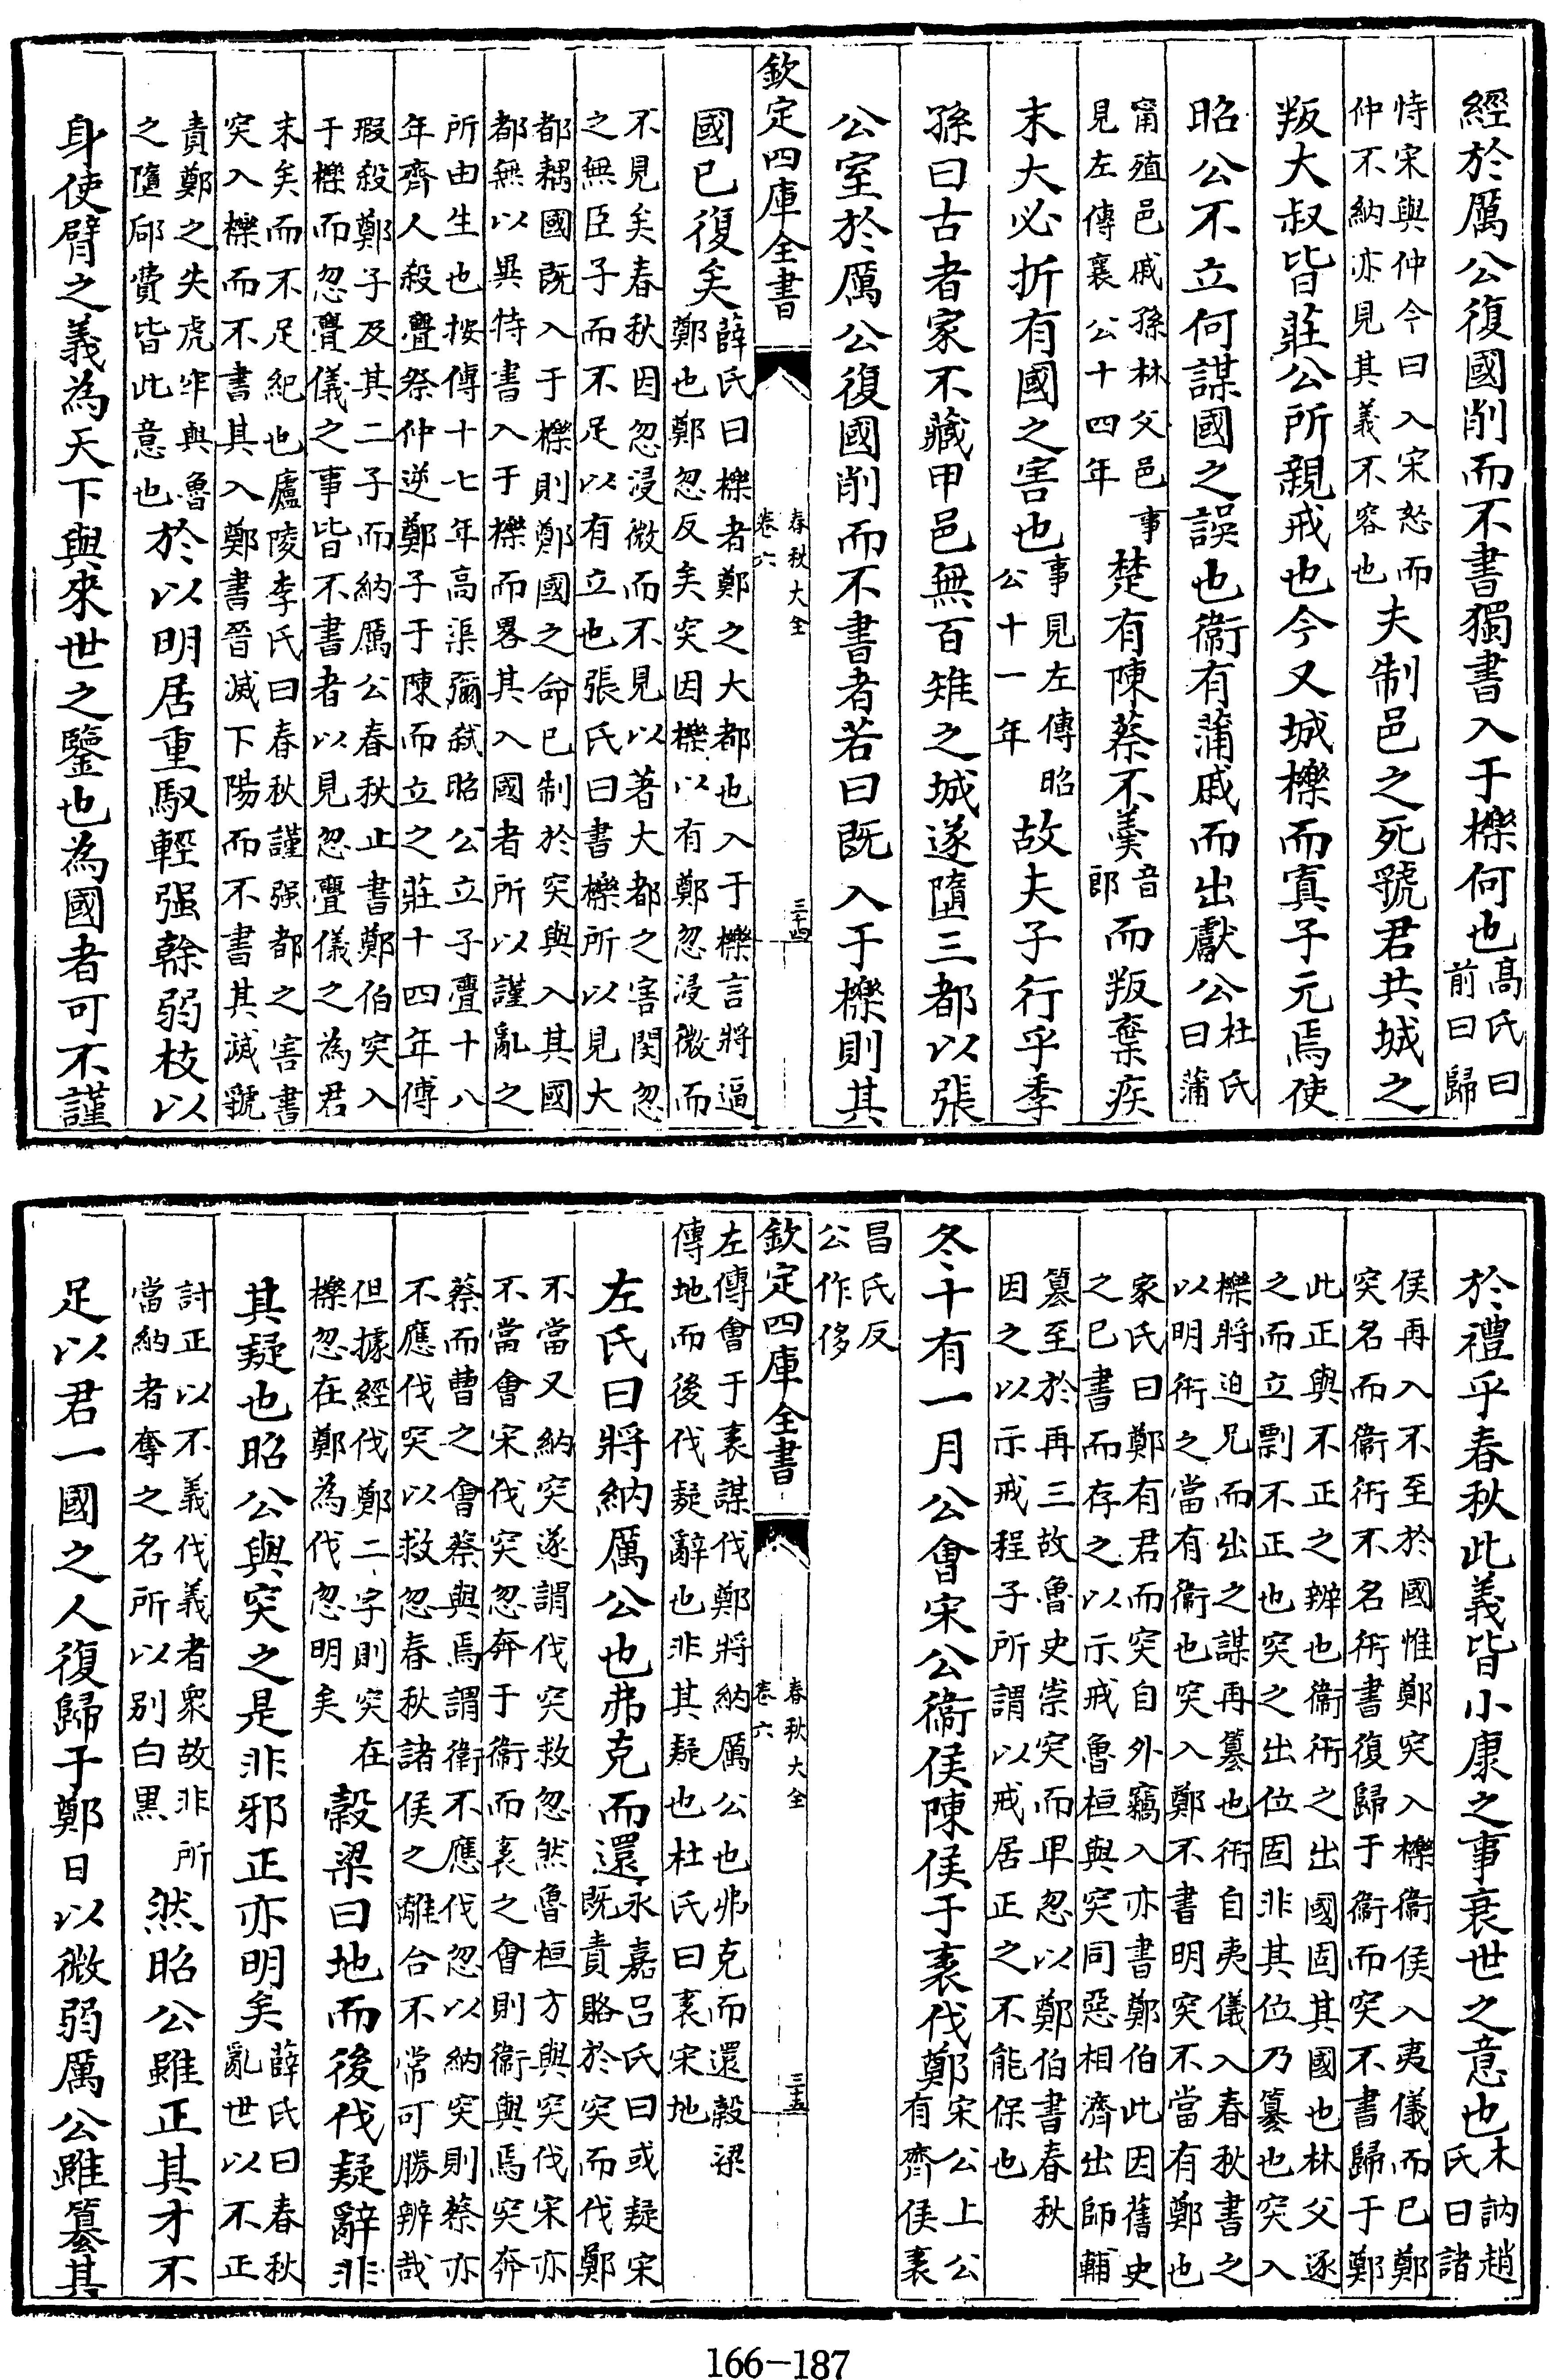 經於厲公復國削而不書獨書入于櫟何也高氏曰前曰歸
恃宋與仲今曰入宋怒而仲不納亦見其義不容也夫制邑之死虢君共城之
叛大叔皆莊公所親戒也今又城櫟而寘子元焉使
昭公不立何謀國之誤也衞有蒲戚而出獻公杜氏曰蒲
甯殖邑戚孫林父邑事見左傳襄公十四年楚有陳蔡不羹音郎而叛棄疾
末大必折有國之害也事見左傳昭公十一年故夫子行乎季
孫曰古者家不藏甲邑無百雉之城遂墮三都以張
公室於厲公復國削而不書者若曰既入于櫟則其
欽定四庫全書
春秋大全
卷六
三十四
國已復矣薛氏曰櫟者鄭之大都也入于櫟言將逼鄭也鄭忽反矣突因櫟以有鄭忽浸微而
不見矣春秋因忽浸微而不見以著大都之害閔忽之無臣子而不足以有立也張氏曰書櫟所以見大
都耦國既入于櫟則鄭國之命已制於突與入其國都無以異特書入于櫟而畧其入國者所以謹亂之
所由生也按傳十七年高渠彌弑昭公立子亹十八年齊人殺亹祭仲逆鄭子于陳而立之莊十四年傅
瑕殺鄭子及其二子而納厲公春秋止書鄭伯突入于櫟而忽亹儀之事皆不書者以見忽亹儀之為君
末矣而不足紀也廬陵李氏曰春秋謹强都之害書突入櫟而不書其入鄭書晉滅下陽而不書其滅虢
責鄭之失虎牢與魯之墮郈費皆此意也於以明居重馭輕强榦弱枝以
身使臂之義為天下與來世之鑒也為國者可不謹
於禮乎春秋此義皆小康之事衰世之意也木訥趙氏曰諸
侯再入不至於國惟鄭突入櫟衞侯入夷儀而已鄭突名而衞衎不名衎書復歸于衞而突不書歸于鄭
此正與不正之辨也衞衎之出國固其國也林父逐之而立剽不正也突之出位固非其位乃簒也突入
櫟將迫兄而出之謀再簒也衎自夷儀入春秋書之以明衎之當有衞也突入鄭不書明突不當有鄭也
家氏曰鄭有君而突自外竊入亦書鄭伯此因舊史之已書而存之以示戒魯桓與突同惡相濟出師輔
簒至於再三故魯史崇突而卑忽以鄭伯書春秋因之以示戒程子所謂以戒居正之不能保也
冬十有一月公會宋公衞侯陳侯于袲伐鄭宋公上公有齊侯袲
昌氏反公作侈
欽定四庫全書
春秋大全
卷六
三十五
左傳會于袲謀伐鄭將納厲公也弗克而還榖梁傳地而後伐疑辭也非其疑也杜氏曰袲宋地
左氏曰將納厲公也弗克而還永嘉呂氏曰或疑宋既責賂於突而伐鄭
不當又納突遂謂伐突救忽然魯桓方與突伐宋亦不當會宋伐突忽奔于衞而袲之會則衞與焉突奔
蔡而曹之會蔡與焉謂衛不應伐忽以納突則蔡亦不應伐突以救忽春秋諸侯之離合不常可勝辨哉
但據經伐鄭二字則突在櫟忽在鄭為伐忽明矣榖梁曰地而後伐疑辭非
其疑也昭公與突之是非邪正亦明矣薛氏曰春秋亂世以不正
討正以不義伐義者衆故非所當納者奪之名所以别白黒然昭公雖正其才不
足以君一國之人復歸于鄭日以微弱厲公雖簒其
166-187